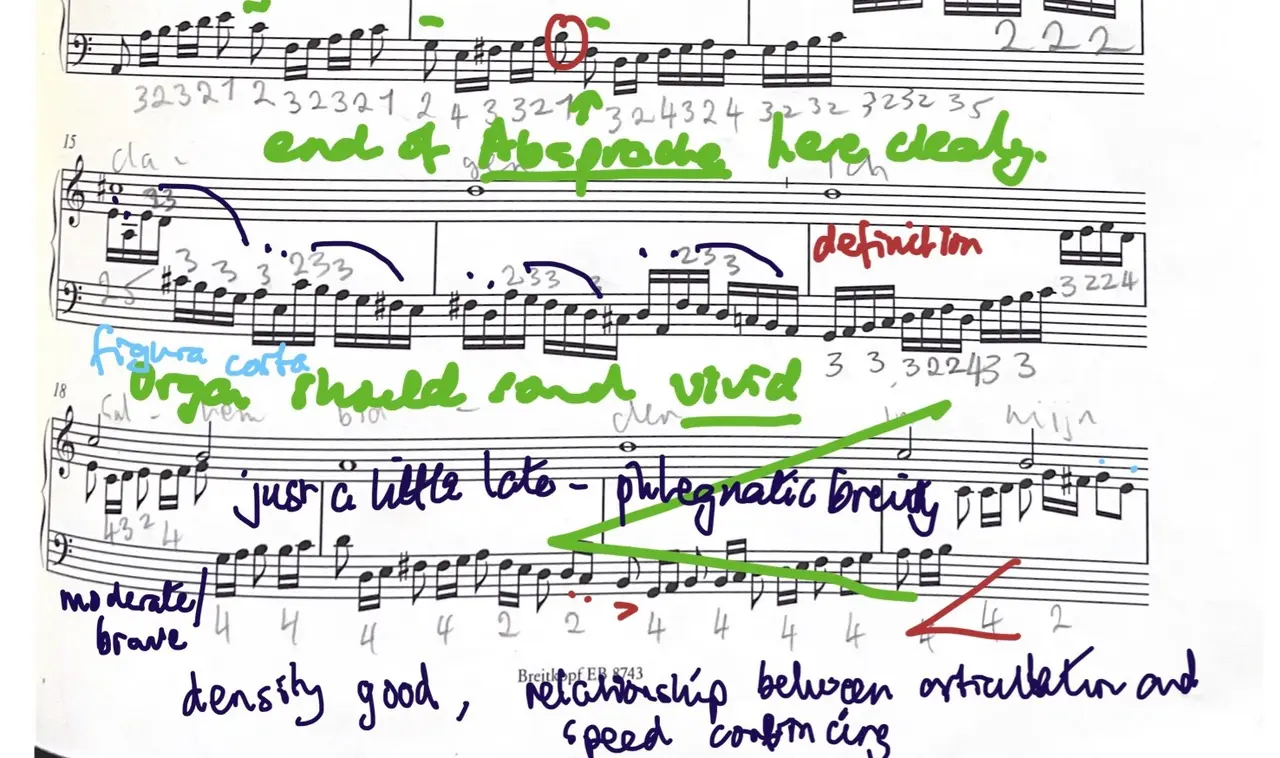 2 2 2
3 2 3 2 1 2 3 2 3 2 1 2 4 3 3 2 1 3 2 4 3 2 4 3 2 3 2 3 2 3 2 3 5
end of Absprache here clearly.
15
da - gen Ich
2 3
definition
2 5 3 3 3 2 3 3 2 3 3 3 2 3 3 3 2 2 4
figura corta
3 3 3 2 2 4 3 3
Organ should sound vivid
18
bra - den in mijn
just a little late - phlegmatic
4 3 2 4
moderate/
brave
4 4 4 4 2 2 4 4 4 4 4 4 2
Breitkopf EB 8743
density good, relationship between articulation and
speed